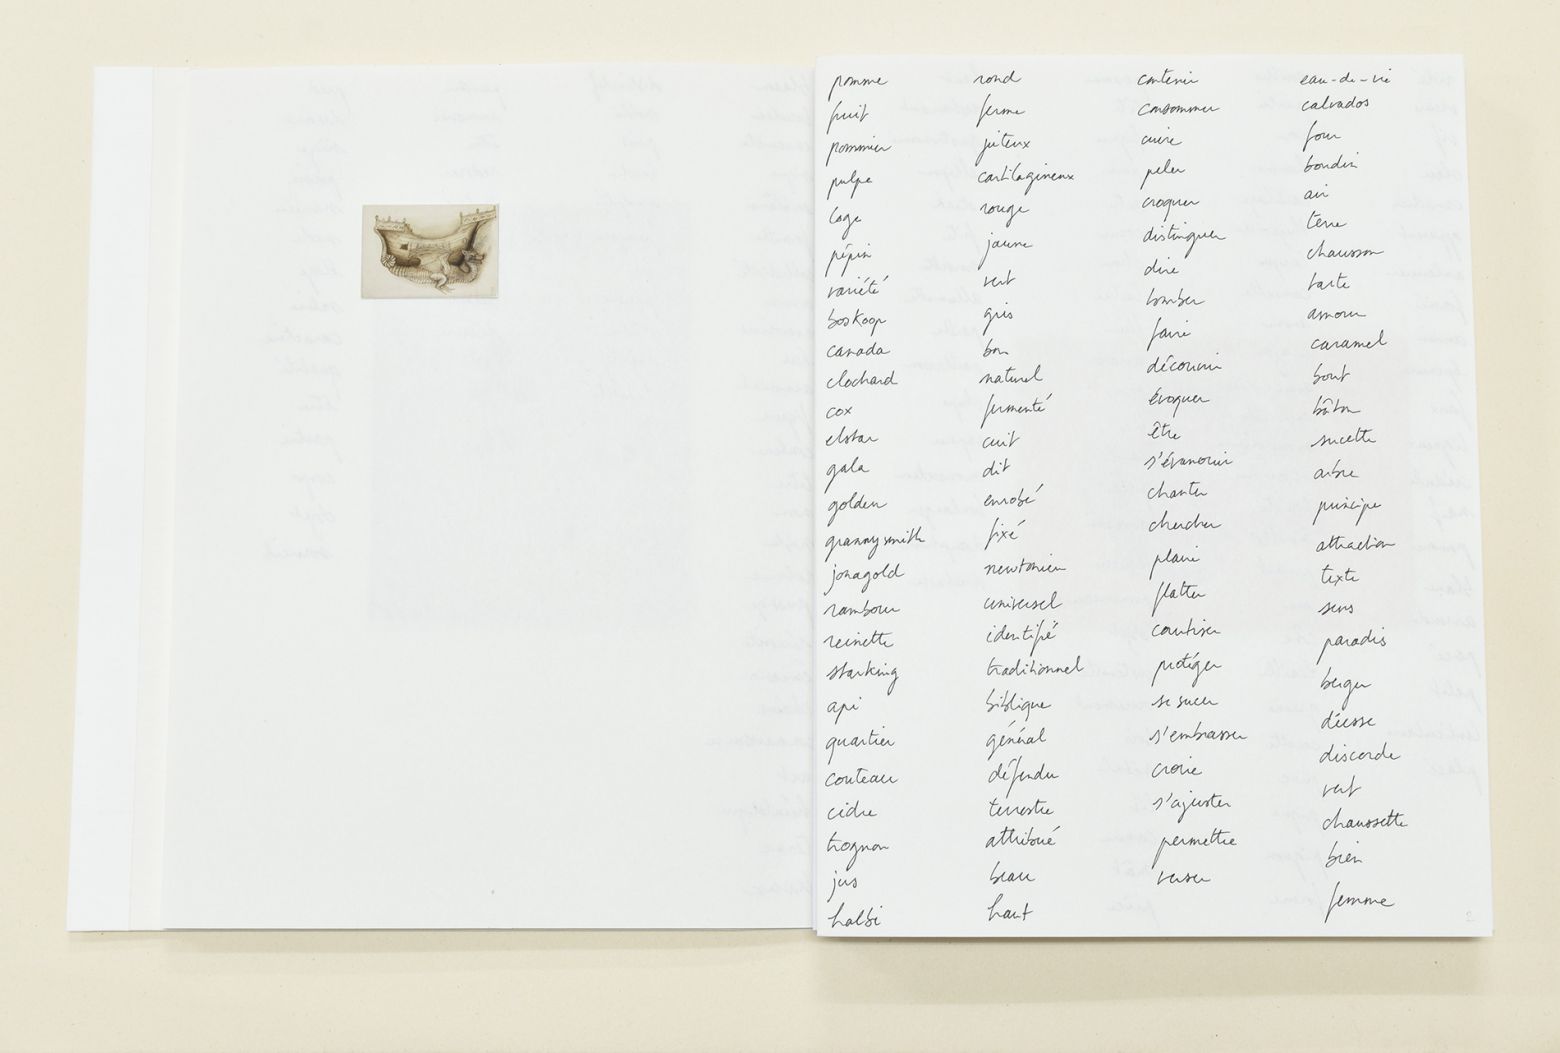 pomme
fruit
pommier
pulpe
loge
pépin
variété
boskoop
canada
clochard
cox
elstar
gala
golden
granny smith
jonagold
rambour
reinette
starking
api
quartier
couteau
cidre
trognon
jus
halbi
rond
ferme
juteux
cartilagineux
rouge
jaune
vert
gris
bon
naturel
fermenté
cuit
dit
enrobé
fixé
newtonien
universel
identifié
traditionnel
biblique
général
défendu
terrestre
attribué
beau
haut
contenir
consommer
cuire
peler
croquer
distinguer
dire
tomber
faire
découvrir
évoquer
être
s'évanouir
chanter
chercher
plaire
flatter
courtiser
protéger
se sucer
s'embrasser
croire
s'ajuster
permettre
verser
eau-de-vie
calvados
four
boudin
air
terre
chausson
tarte
amour
caramel
bout
bâton
sucette
arbre
principe
attraction
texte
sens
paradis
berger
déesse
discorde
vert
chaussette
bien
femme
2